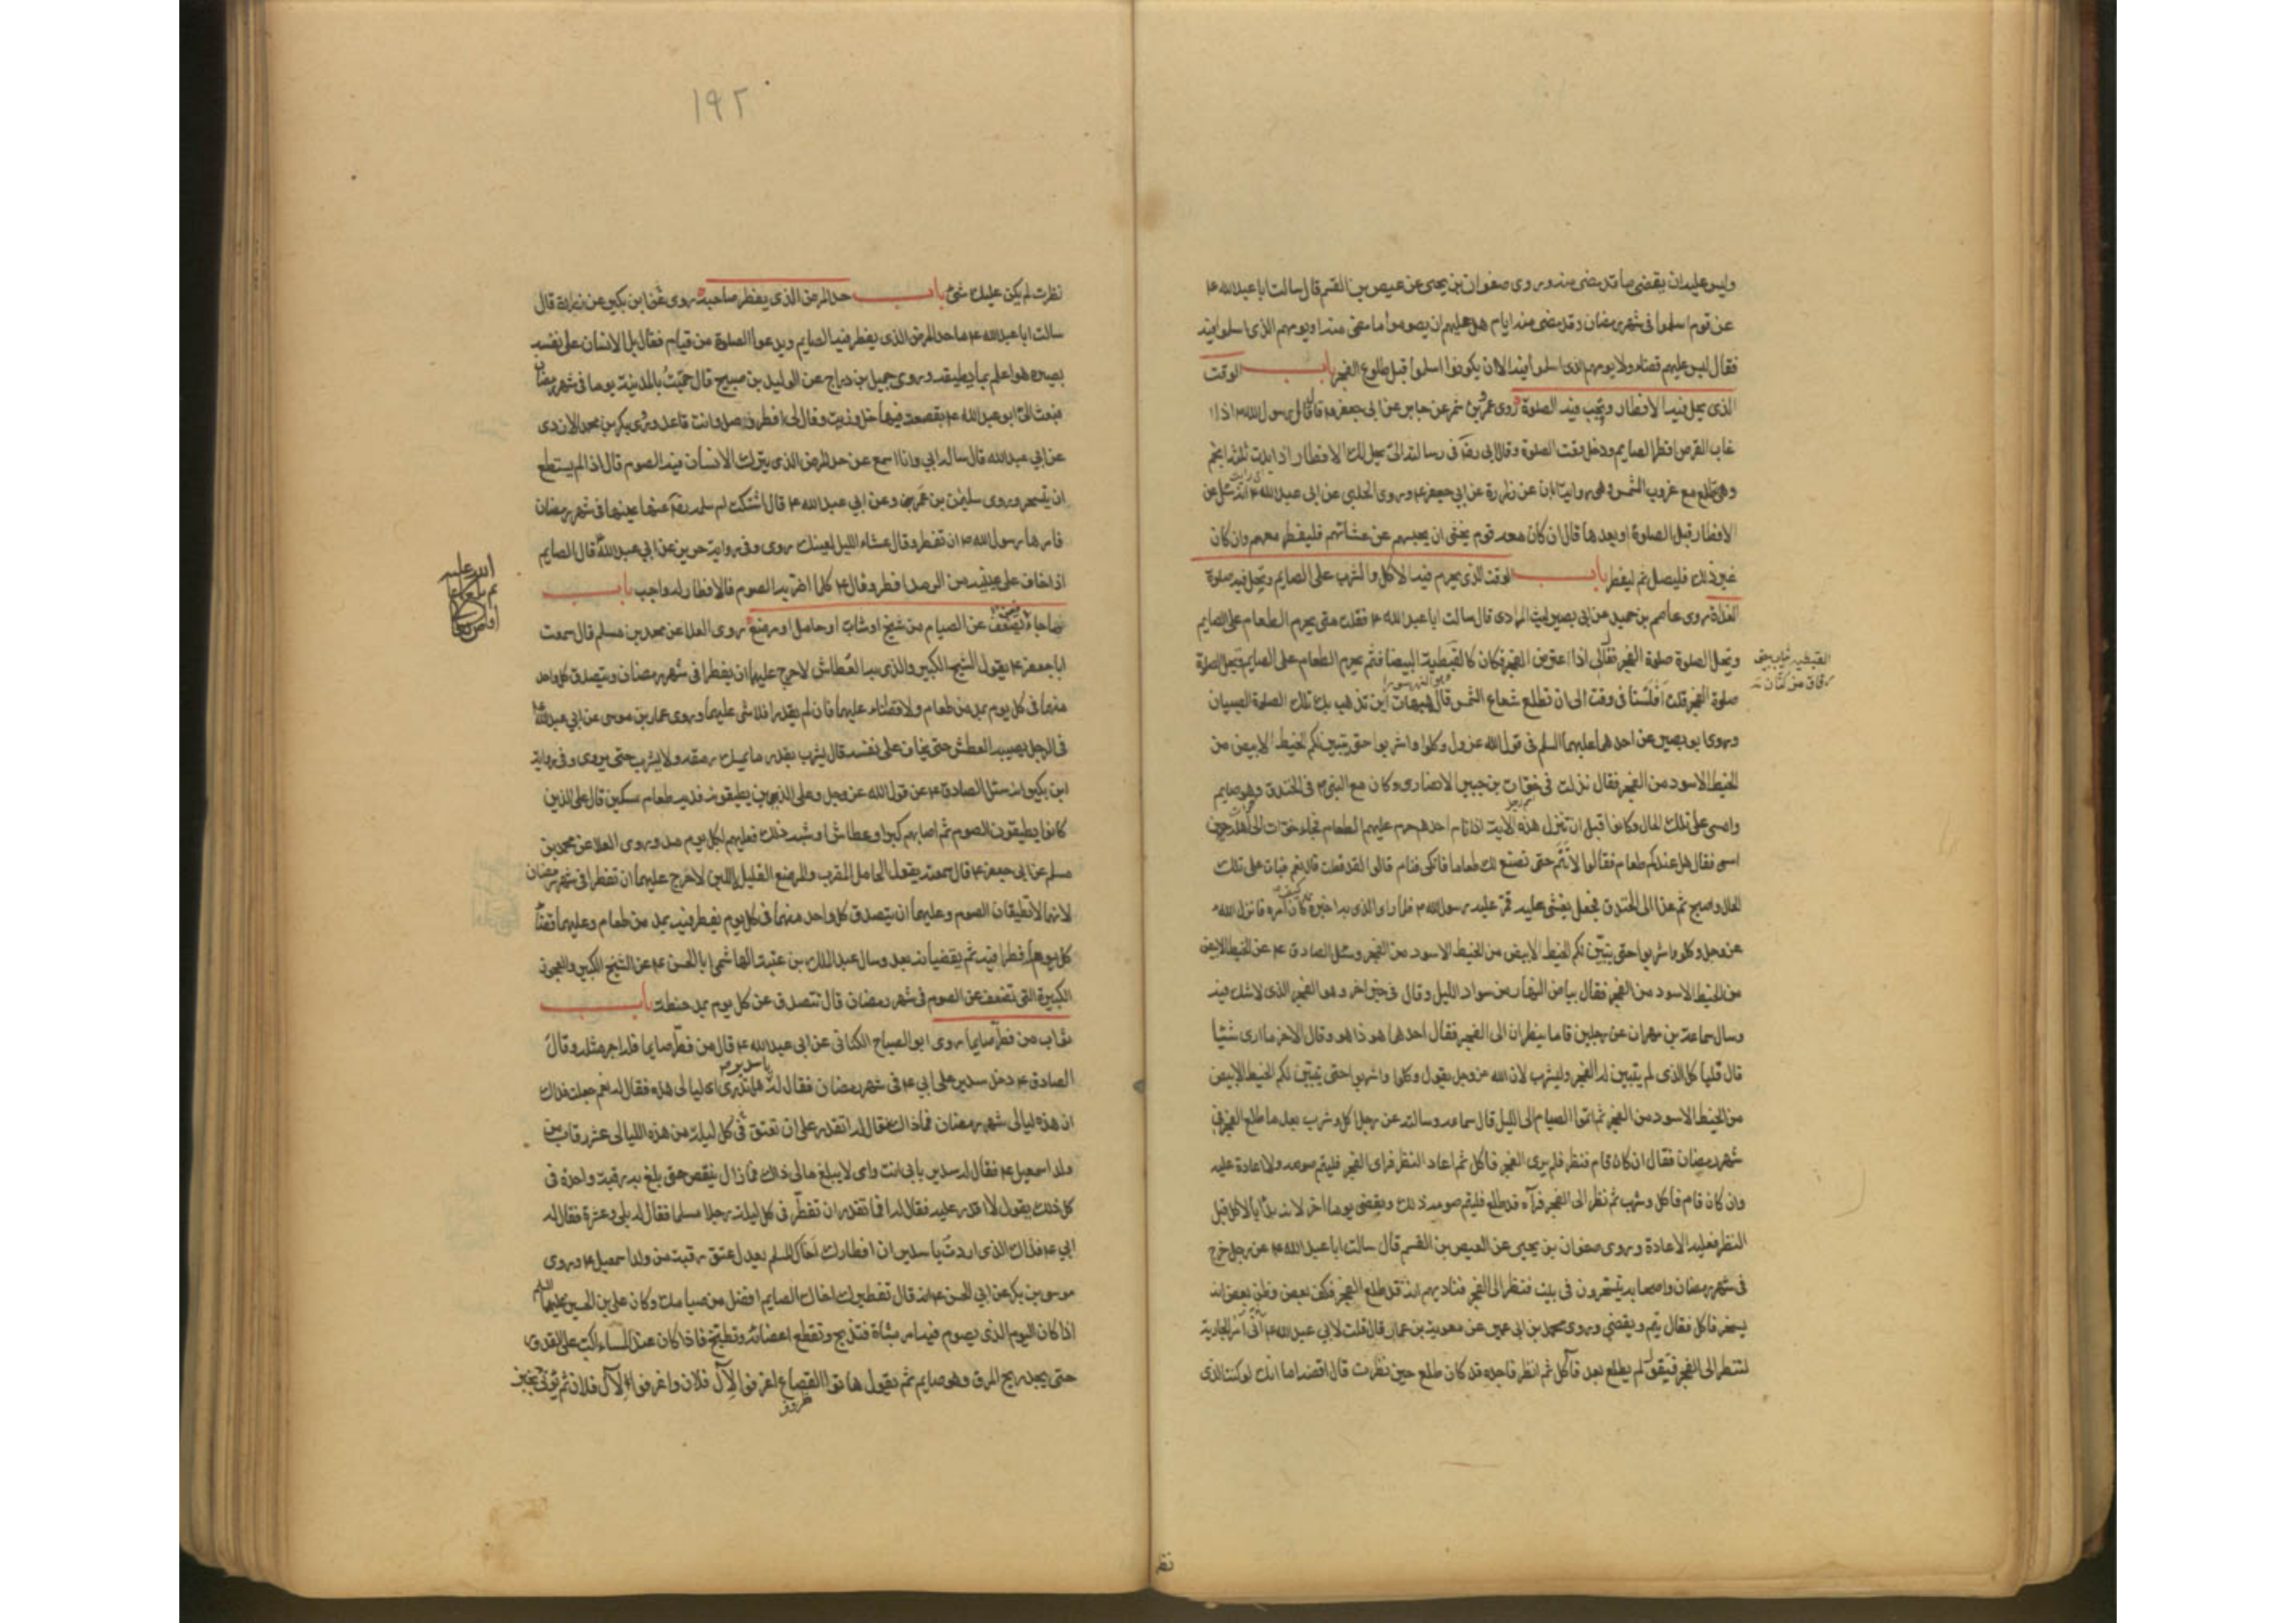 وليس عليه ان يقضى ما قد مضى منه وروى صفوان بن يحيى عن عيص بن القسم قال سالت ابا عبد الله ع
عن قوم اسلموا فى شهر رمضان وقد مضى منه ايام هل عليهم ان يصوموا ما مضى منه او يومهم الذى اسلموا فيه
فقال ليس عليهم قضاء ولا يومهم الذى اسلموا فيه الا ان يكونوا اسلموا قبل طلوع الفجر باب الوقت
الذى يحل فيه الافطار وتجب فيه الصلوة روى عمرو بن شمر عن جابر عن ابى جعفر ع قال قال رسول الله ص اذا
غاب القرص افطر الصايم ودخل وقت الصلوة وقال ابى رضه فى رسالته الىّ يحل لك الافطار اذا بدت ثلثة انجم
وهى تطلع مع غروب الشمس وهى رواية ابان عن زرارة عن ابى جعفر ع وروى الحلبى عن ابى عبد الله ع انه سئل عن
الافطار قبل الصلوة او بعدها قال ان كان معه قوم يخشى ان يحبسهم عن عشائهم فليفطر معهم وان كان
غير ذلك فليصل ثم ليفطر باب الوقت الذى يحرم فيه الاكل والشرب على الصايم وتحل فيه صلوة
الغداة روى عاصم بن حميد عن ابى بصير ليث المرادى قال سالت ابا عبد الله ع فقلت متى يحرم الطعام على الصايم
وتحل الصلوة صلوة الفجر فقال لى اذا اعترض الفجر فكان كالقبطية البيضا فثم يحرم الطعام على الصايم وتحل الصلوة
القبطية ثياب بيض
رقاق من كتان
صلوة الفجر قلت افلسنا فى وقت الى ان تطلع شعاع الشمس قال هيهات اين تذهب بك تلك الصلوة الصبيان
وروى ابو بصير عن احدهما عليهما السلم فى قول الله عز وجل وكلوا واشربوا حتى يتبين لكم الخيط الابيض من
الخيط الاسود من الفجر فقال نزلت فى خوات بن جبير الانصارى وكان مع النبى ص فى الخندق وهو صايم
وامسى على تلك الحال وكانوا قبل ان تنزل هذه الاية اذا نام احدهم حرم عليهم الطعام فجاء خوات الى اهله حين
امسى فقال هل عندكم طعام فقالوا لا تنم حتى نصنع لك طعاما فاتكى فنام قالوا قد فعلت قال نعم فبات على تلك
الحال واصبح ثم غدا الى الخندق فجعل يغشى عليه فمر عليه رسول الله ص فلما راى الذى به اخبره كيف كان امره فانزل الله
عز وجل وكلوا واشربوا حتى يتبين لكم الخيط الابيض من الخيط الاسود من الفجر وسئل الصادق ع عن الخيط الابيض
من الخيط الاسود من الفجر فقال بياض النهار من سواد الليل وقال فى خبر اخر وهو الفجر الذى لا شك فيه
وسال سماعة بن مهران عن رجلين قاما ينظران الى الفجر فقال احدهما هو ذا هو وقال الاخر ما ارى شيئا
قال فليأكل الذى لم يتبين له الفجر وليشرب لان الله عز وجل يقول وكلوا واشربوا حتى يتبين لكم الخيط الابيض
من الخيط الاسود من الفجر ثم اتموا الصيام الى الليل قال سماعة وسالته عن رجل اكل وشرب بعد ما طلع الفجر فى
شهر رمضان فقال ان كان قام فنظر فلم يرى الفجر فاكل ثم اعاد النظر فراى الفجر فليتم صومه ولا اعادة عليه
وان كان قام فاكل وشرب ثم نظر الى الفجر فرآه قد طلع فليتم صومه ذلك ويقضى يوما اخر لانه بدأ بالاكل قبل
النظر فعليه الاعادة وروى صفوان بن يحيى عن العيص بن القسم قال سالت ابا عبد الله ع عن رجل خرج
فى شهر رمضان واصحابه يتسحرون فى بيت فنظر الى الفجر فناديهم انه قد طلع الفجر فكف بعض وظن بعض انه
يسخر فاكل فقال يتم ويقضى وروى محمد بن ابى عمير عن معوية بن عمار قال قلت لابى عبد الله ع آمر الجارية
لتنظر الى الفجر فتقول لم يطلع بعد فآكل ثم انظر فاجده قد كان طلع حين نظرت قال اقضه اما انك لو كنت الذى
نظر
١٩٢
نظرت لم يكن عليك شئ باب حد المرض الذى يفطر صاحبه روى عن ابن بكير عن زرارة قال
سالت ابا عبد الله ع ما حد المرض الذى يفطر فيه الصايم ويدعوا الصلوة من قيام فقال بل الانسان على نفسه
بصيره هو اعلم بما يطيقه وروى جميل بن دراج عن الوليد بن صبيح قال حممت بالمدينة يوما فى شهر رمضان
فبعث الىّ ابو عبد الله ع بقصعة فيها خل وزيت وقال لى افطر وصل وانت قاعد وروى بكر بن محمد الازدى
عن ابى عبد الله قال ساله ابى وانا اسمع عن حد المرض الذى يترك الانسان فيه الصوم قال اذا لم يستطع
ان يتسحر وروى سليمن بن عمرو عن ابى عبد الله ع قال اشتكت ام سلمه رضه عينها فى شهر رمضان
فامرها رسول الله ص ان تفطر وقال عشاء الليل لعينك روى وفى رواية حريز عن ابى عبد الله قال الصايم
اذا خاف على عينيه من الرمد افطر وقال ع كلما اضر به الصوم فالافطار له واجب باب
ما جاء فيمن يضعف عن الصيام من شيخ او شاب او حامل او مرضع روى العلا عن محمد بن مسلم قال سمعت
ابا جعفر ع يقول الشيخ الكبير والذى به العطاش لا حرج عليهما ان يفطرا فى شهر رمضان ويتصدق كل واحد
منهما فى كل يوم بمد من طعام ولا قضاء عليهما فان لم يقدرا فلا شى عليهما وروى عمار بن موسى عن ابى عبد الله ع
فى الرجل يصيبه العطش حتى يخاف على نفسه قال يشرب بقدر ما يمسك رمقه ولا يشرب حتى يروى وفى رواية
ابن بكير انه سئل الصادق ع عن قول الله عز وجل وعلى الذين يطيقونه فدية طعام مسكين قال على الذين
كانوا يطيقون الصوم ثم اصابهم كبر او عطاش او شبه ذلك فعليهم لكل يوم مد وروى العلا عن محمد بن
مسلم عن ابى جعفر ع قال سمعته يقول الحامل المقرب والمرضع القليل اللبن لا حرج عليهما ان تفطرا فى شهر رمضان
لانهما لا تطيقان الصوم وعليهما ان يتصدق كل واحد منهما فى كل يوم يفطر فيه بمد من طعام وعليهما قضاء
كل يوم افطرا فيه ثم يقضيانه بعد وسال عبد الملك بن عتبة الهاشمى ابا الحسن ع عن الشيخ الكبير والعجوز
الكبيرة التى تضعف عن الصوم فى شهر رمضان قال تتصدق عن كل يوم بمد حنطة باب
ثواب من فطر صايما روى ابو الصباح الكنانى عن ابى عبد الله ع قال من فطر صايما فله اجر مثله وقال
الصادق ع دخل سدير على ابى ع فى شهر رمضان فقال له يا سدير هل تدرى اى ليالى هذه فقال له نعم جعلت فداك
ان هذه ليالى شهر رمضان فما ذاك فقال له اتقدر على ان تعتق فى كل ليلة من هذه الليالى عشر رقاب من
ولد اسمعيل ع فقال له سدير بابى انت وامى لا يبلغ مالى ذاك فما زال ينقص حتى بلغ به رقبة واحدة فى
كل ذلك يقول لا اقدر عليه فقال له افما تقدر ان تفطر فى كل ليلة رجلا مسلما فقال له بلى وعشرة فقال له
ابى ع فذاك الذى اردت يا سدير ان افطارك اخاك المسلم يعدل عتق رقبة من ولد اسمعيل ع وروى
موسى بن بكر عن ابى الحسن ع انه قال تفطيرك اخاك الصايم افضل من صيامك وكان على بن الحسين عليهما السلم
اذا كان اليوم الذى يصوم فيه امر بشاة فتذبح وتقطع اعضائه وتطبخ فاذا كان عند المساء اكب على القدور
حتى يجد ريح المرق وهو صايم ثم يقول هاتوا القصاع اغرفوا لآل فلان واغرفوا لآل فلان ثم يؤتى بخبز